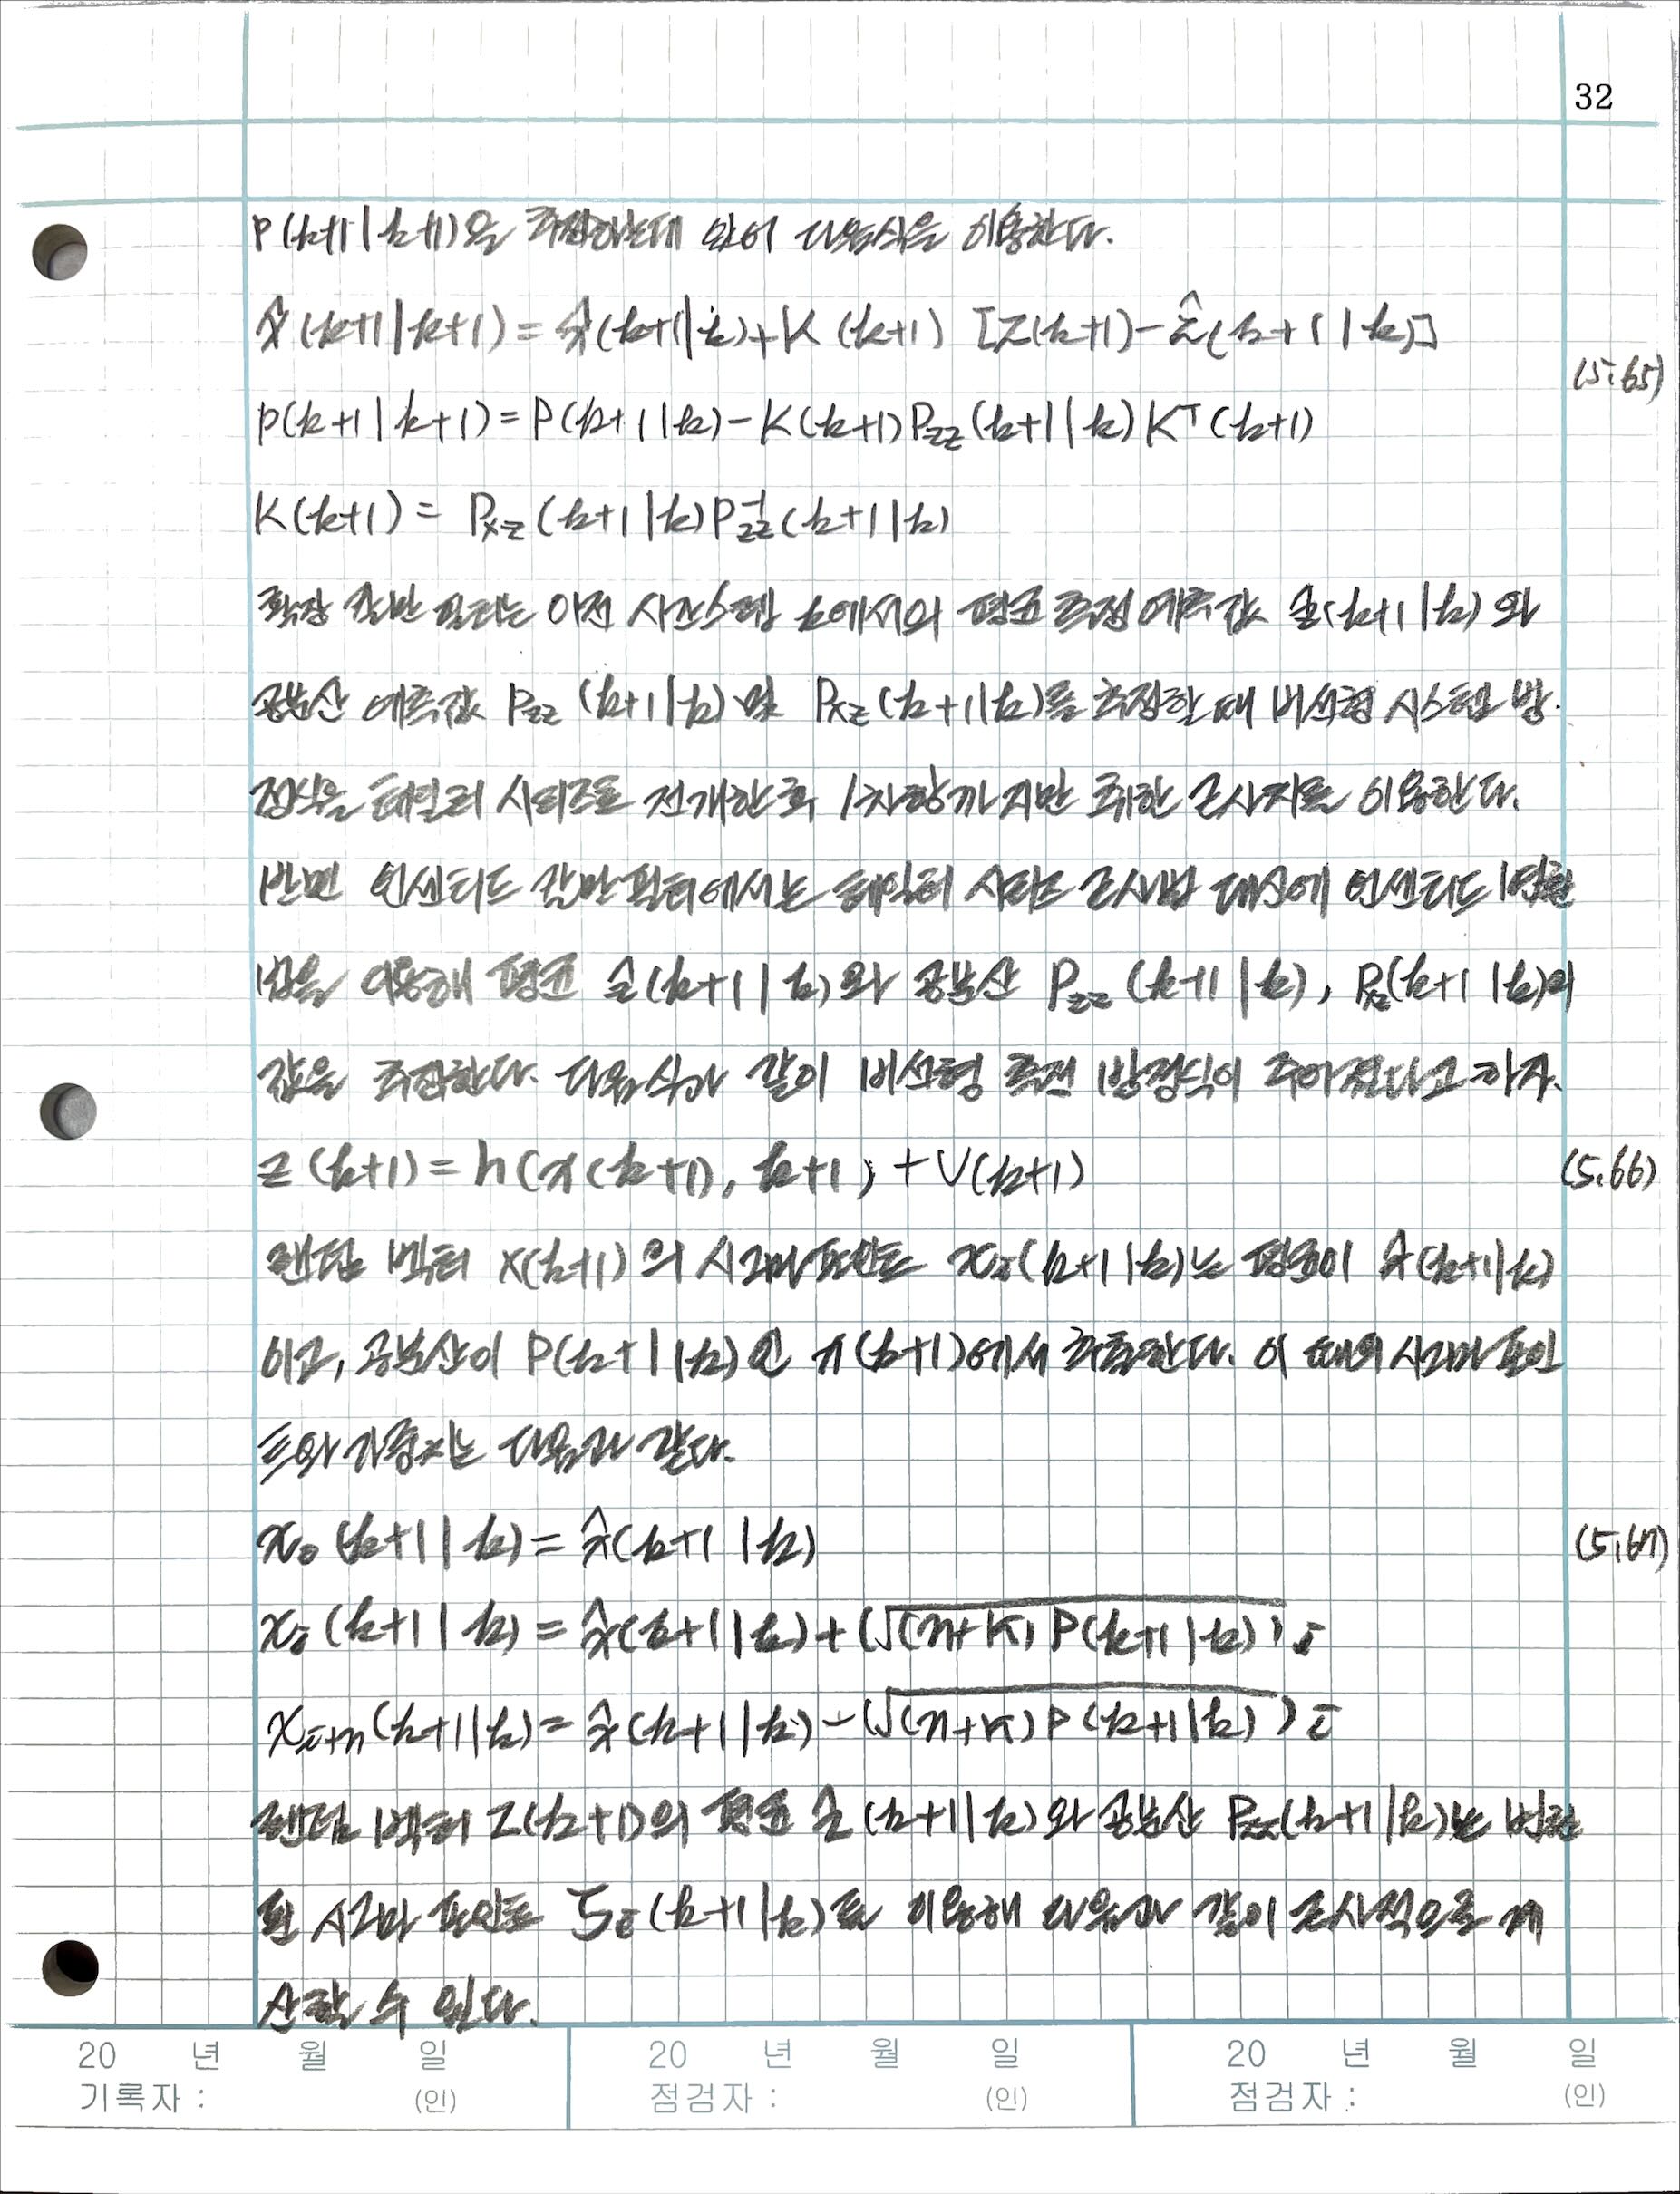 32
P(k+1|k+1)을 추정하는데 있어 다음식을 이용한다.
x̂(k+1|k+1) = x̂(k+1|k) + K(k+1) [Z(k+1) - ẑ(k+1|k)]
(5.65)
P(k+1|k+1) = P(k+1|k) - K(k+1)Pzz(k+1|k)Kᵀ(k+1)
K(k+1) = Pxz(k+1|k)Pzz⁻¹(k+1|k)
확장 칼만 필터는 이전 시간스텝 k에서의 평균 측정 예측값 ẑ(k+1|k)와
공분산 예측값 Pzz(k+1|k) 및 Pxz(k+1|k)를 추정할 때 비선형 시스템 방
정식을 테일러 시리즈로 전개한 후 1차항까지만 취한 근사치를 이용한다.
반면 언센티드 칼만필터에서는 테일러 시리즈 근사법 대신에 언센티드 변환
법을 이용해 평균 ẑ(k+1|k)와 공분산 Pzz(k+1|k), Pxz(k+1|k)의
값을 추정한다. 다음 식과 같이 비선형 측정 방정식이 주어졌다고 하자.
z(k+1) = h(x(k+1), k+1) + v(k+1) (5.66)
랜덤 벡터 x(k+1)의 시그마 포인트 xᵢ(k+1|k)는 평균이 x̂(k+1|k)
이고, 공분산이 P(k+1|k)인 x(k+1)에서 추출한다. 이 때의 시그마 포인
트와 가중치는 다음과 같다.
x₀(k+1|k) = x̂(k+1|k) (5.67)
xᵢ(k+1|k) = x̂(k+1|k) + (√(n+K)P(k+1|k))ᵢ
xᵢ₊ₙ(k+1|k) = x̂(k+1|k) - (√(n+K)P(k+1|k))ᵢ
랜덤 벡터 Z(k+1)의 평균 ẑ(k+1|k)와 공분산 Pzz(k+1|k)는 변환
된 시그마 포인트 ζᵢ(k+1|k)를 이용해 다음과 같이 근사적으로 계
산할 수 있다.
20 년 월 일 20 년 월 일 20 년 월 일
기록자 : (인) 점검자 : (인) 점검자 : (인)